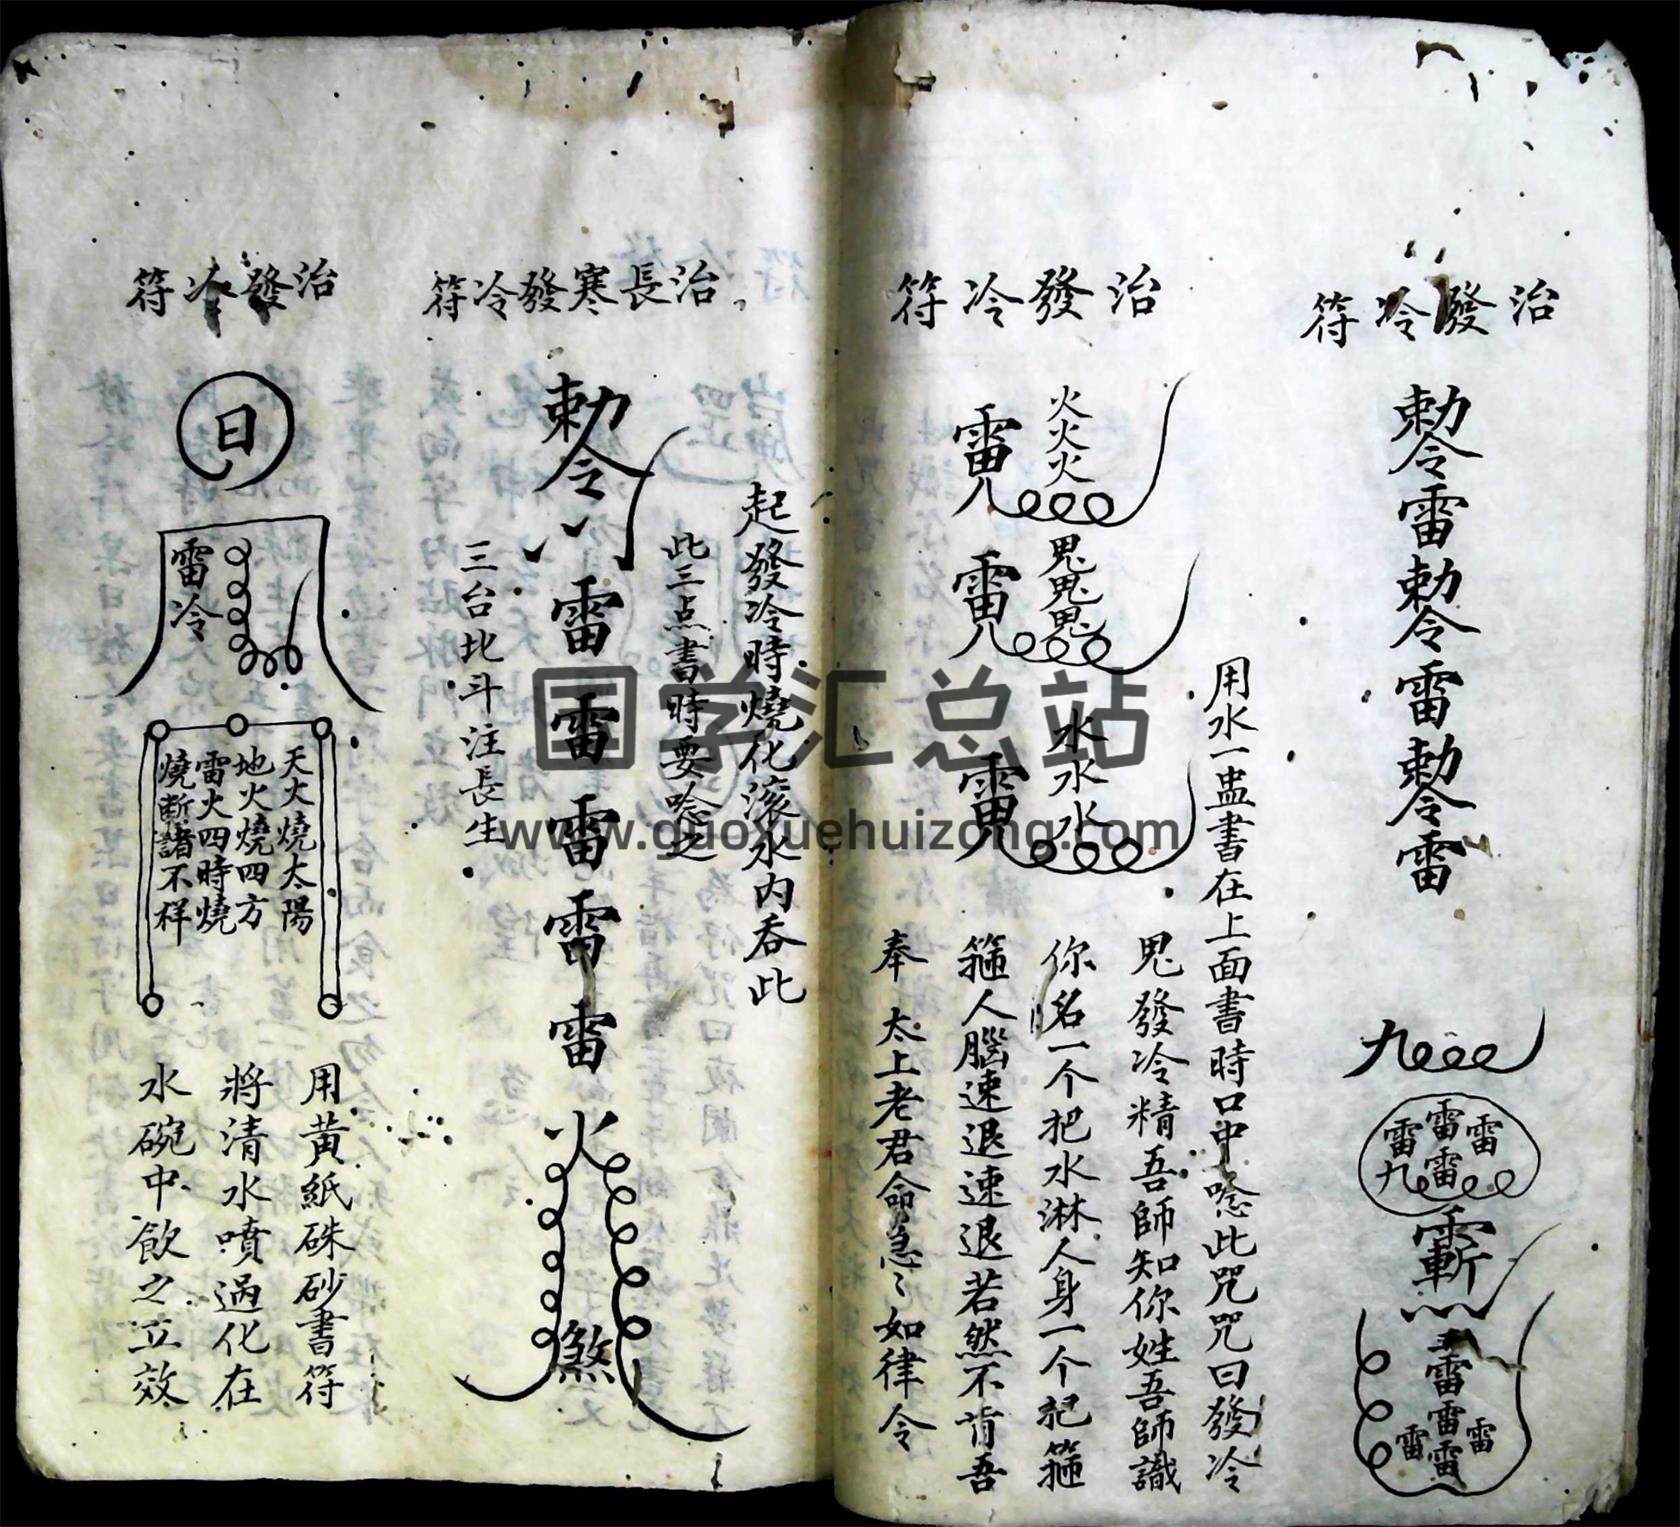 治發冷符
勅令雷勅令雷勅令雷
九
雷雷雷
雷
九
斬
雷
雷
雷雷雷
治發冷符
火火火
鬼鬼鬼
水水水
用水一盅書在上面書時口中唸此咒咒曰發冷
鬼發冷精吾師知你姓吾師識
你名一个把水淋人身一个記箍
箍人腦速退速退若然不肯吾
奉太上老君命急〻如律令
治長寒發冷符
起發冷時燒化滚水内吞此
此三点書時要唸之
勅令
雷雷雷雷雷
火
煞
三台北斗注長生
治發冷符
日
雷冷
天火燒太陽
地火燒四方
雷火四時燒
燒断諸不祥
用黄紙硃砂書符
將清水噴過化在
水碗中飲之立效
国学汇总站
www.guoxuehuizong.com